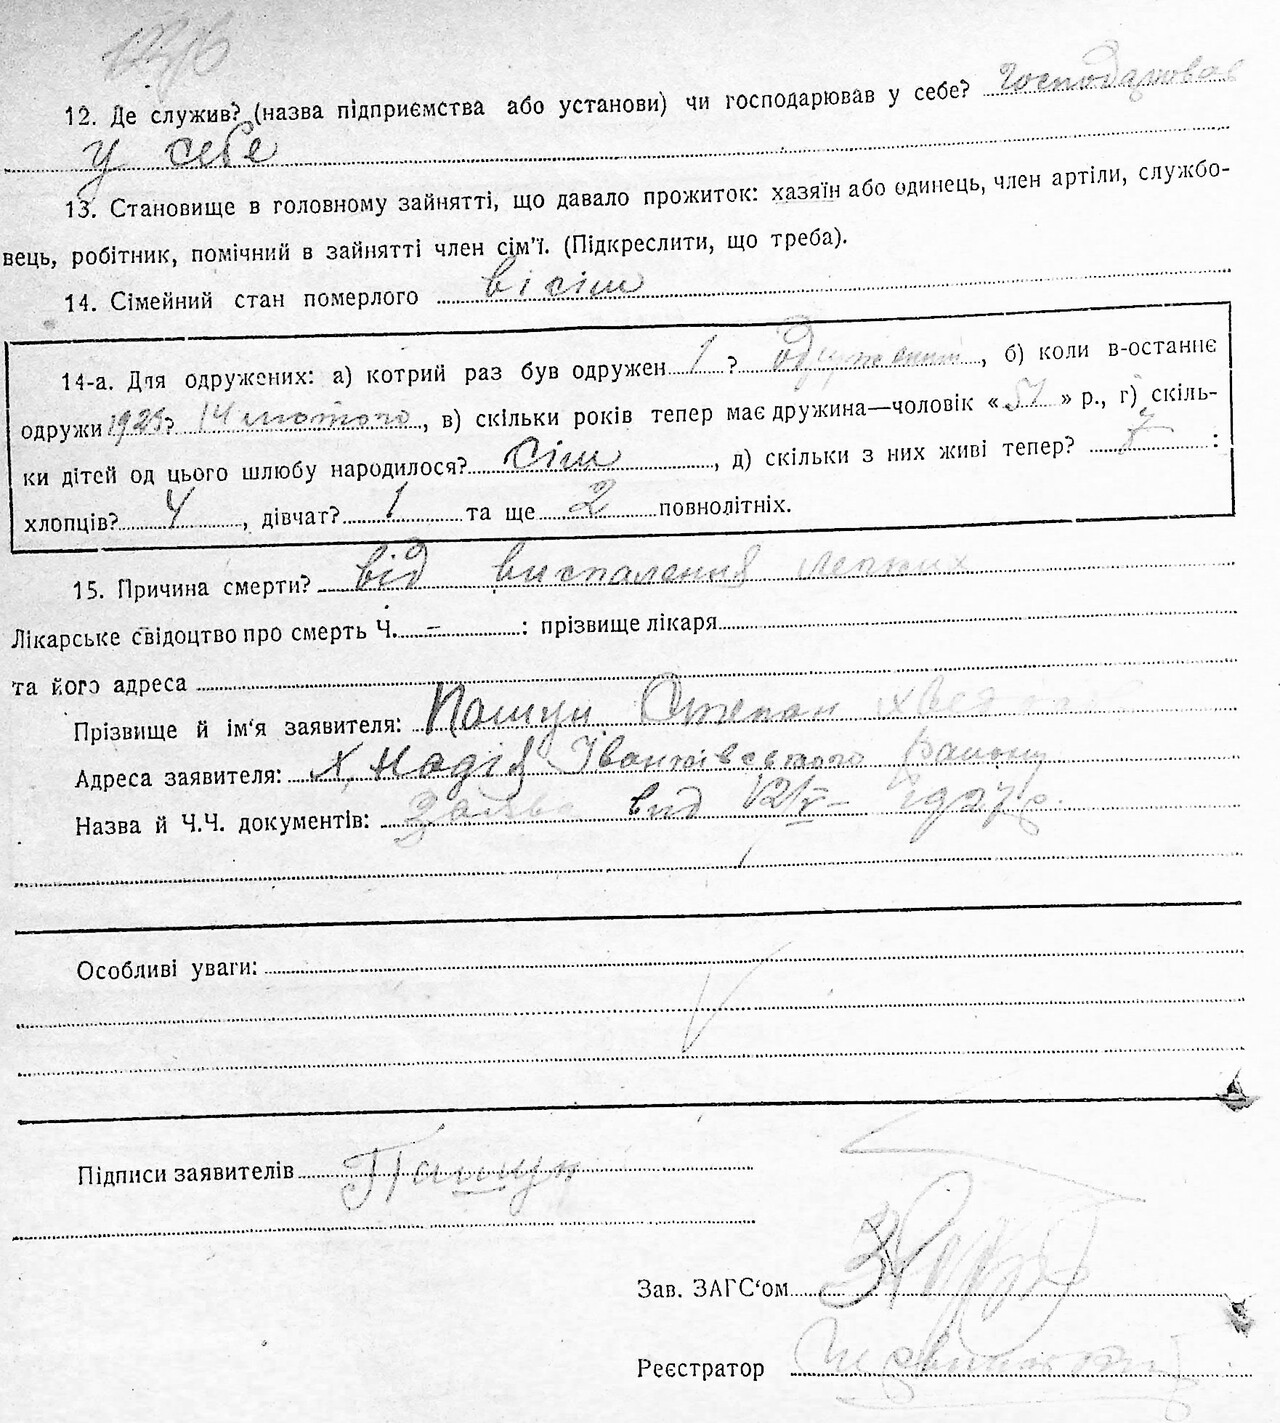 12. Де служив? (назва підприємства або установи) чи господарював у себе? господарював
у себе
13. Становище в головному зайнятті, що давало прожиток: хазяїн або одинець, член артіли, службо-
вець, робітник, помічний в зайнятті член сім'ї. (Підкреслити, що треба).
14. Сімейний стан померлого вісім
14-а. Для одружених: а) котрий раз був одружен 1 ? одружений, б) коли в-останнє
одружи ? 14 лютого, в) скільки років тепер має дружина—чоловік « 51 » р., г) скіль-
ки дітей од цього шлюбу народилося? сім, д) скільки з них живі тепер? 7 :
хлопців? 4, дівчат? 1 та ще 2 повнолітніх.
15. Причина смерти? від виспалення легких
Лікарське свідоцтво про смерть Ч. – : прізвище лікаря
та його адреса
Прізвище й ім'я заявителя: Пашун Степан
Адреса заявителя: х. Надія Іванківського району
Назва й Ч.Ч. документів: Заява вид 12/V- 1927 р.
Особливі уваги:
Підписи заявителів Пашун
Зав. ЗАГС'ом
Реєстратор